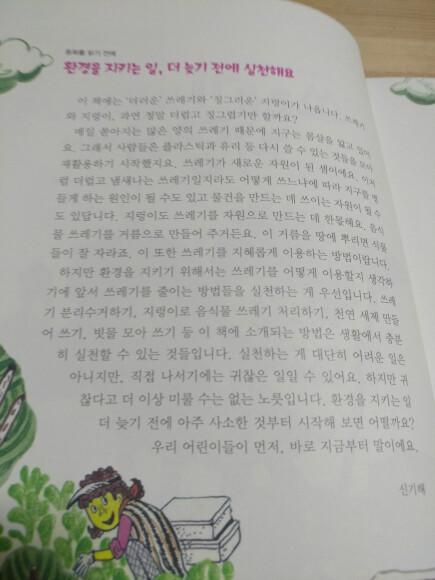 동화를 읽기 전에
환경을 지키는 일, 더 늦기 전에 실천해요
이 책에는 '더러운' 쓰레기와 '징그러운' 지렁이가 나옵니다. 쓰레기
와 지렁이, 과연 정말 더럽고 징그럽기만 할까요?
매일 쏟아지는 많은 양의 쓰레기 때문에 지구는 몸살을 앓고 있어
요. 그래서 사람들은 플라스틱과 유리 등 다시 쓸 수 있는 것들을 모아
재활용하기 시작했지요. 쓰레기가 새로운 자원이 된 셈이에요. 이처
럼 더럽고 냄새나는 쓰레기일지라도 어떻게 쓰느냐에 따라 지구를 병
들게 하는 원인이 될 수도 있고 물건을 만드는 데 쓰이는 자원이 될 수
도 있답니다. 지렁이도 쓰레기를 자원으로 만드는 데 한몫해요. 음식
물 쓰레기를 거름으로 만들어 주거든요. 이 거름을 땅에 뿌리면 식물
들이 잘 자라죠. 이 또한 쓰레기를 지혜롭게 이용하는 방법이랍니다.
하지만 환경을 지키기 위해서는 쓰레기를 어떻게 이용할지 생각하
기에 앞서 쓰레기를 줄이는 방법들을 실천하는 게 우선입니다. 쓰레
기 분리수거하기, 지렁이로 음식물 쓰레기 처리하기, 천연 세제 만들
어 쓰기, 빗물 모아 쓰기 등 이 책에 소개되는 방법은 생활에서 충분
히 실천할 수 있는 것들입니다. 실천하는 게 대단히 어려운 일은
아니지만, 직접 나서기에는 귀찮은 일일 수 있어요. 하지만 귀
찮다고 더 이상 미룰 수는 없는 노릇입니다. 환경을 지키는 일
더 늦기 전에 아주 사소한 것부터 시작해 보면 어떨까요?
우리 어린이들이 먼저, 바로 지금부터 말이에요.
신기해